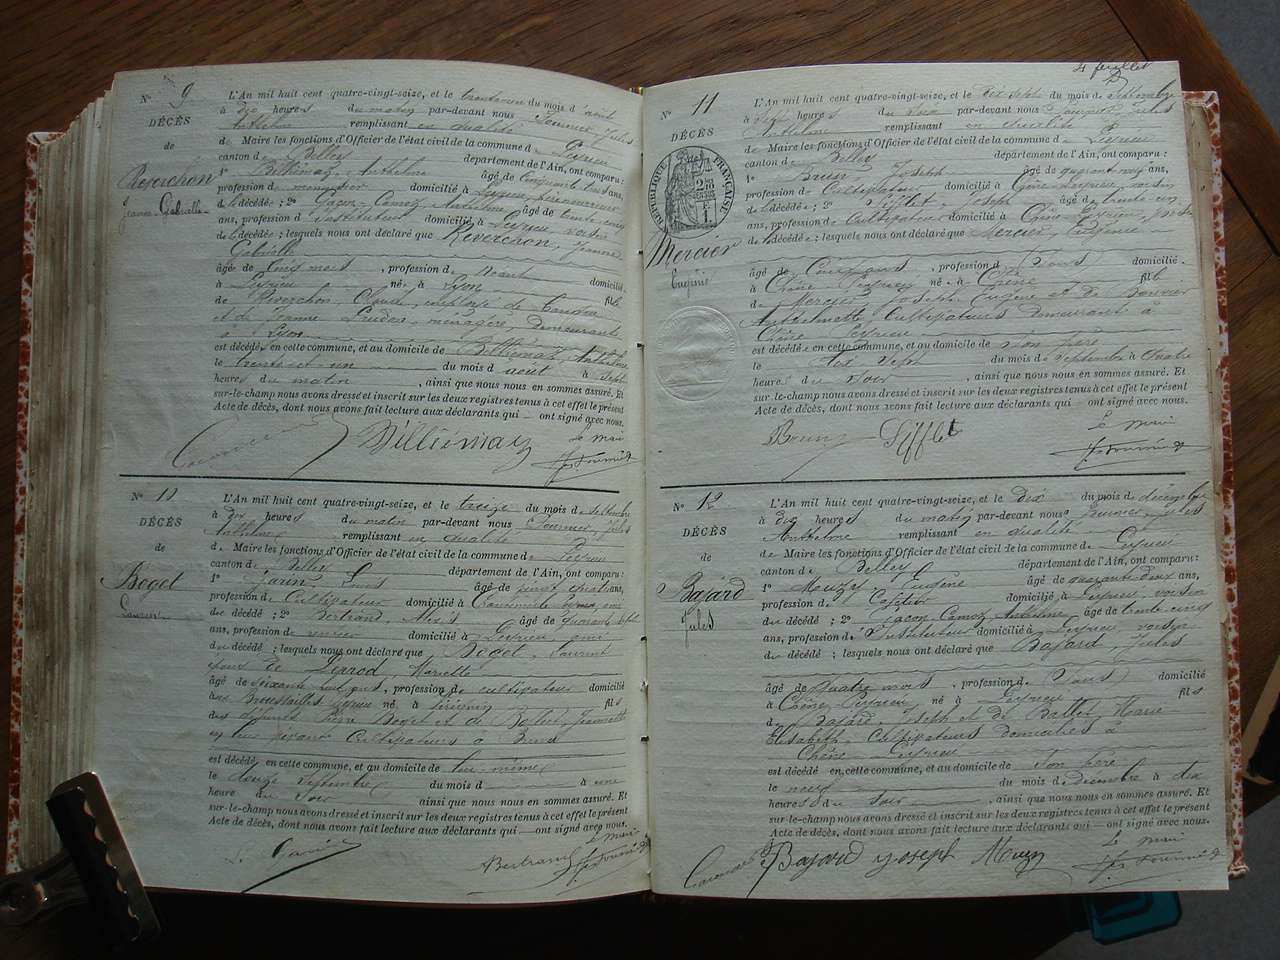 4 feuillet
N° 9
DÉCÈS
de
Reverchon
Jeanne Gabrielle
L'An mil huit cent quatre-vingt-seize, et le trente un du mois d'août
à dix heures du matin par-devant nous Fournier, Jules
Anthelme remplissant en qualité
de Maire les fonctions d'Officier de l'état civil de la commune de Peyrieu
canton de Belley département de l'Ain, ont comparu :
1° Billiémaz, Anthelme âgé de cinquante trois ans,
profession de menuisier domicilié à Peyrieu,
de la décédée ; 2° Camoz, Anthelme âgé de trente cinq
ans, profession d'instituteur domicilié à Peyrieu, voisin
de la décédée ; lesquels nous ont déclaré que Reverchon, Jeanne
Gabrielle
âgé de trois mois, profession de néant
à Peyrieu né à Lyon domicilié
fille
de Reverchon, Claude, employé de
et de Jeanne, ménagère, demeurants
à Lyon
est décédée en cette commune, et au domicile de Billiémaz, Anthelme
le trente et un du mois d'août à sept
heures du matin, ainsi que nous nous en sommes assuré. Et
sur-le-champ nous avons dressé et inscrit sur les deux registres tenus à cet effet le présent
Acte de décès, dont nous avons fait lecture aux déclarants qui — ont signé avec nous.
Billiémaz
Le maire
Jes Fournier
N° 10
DÉCÈS
de
Boget
Laurent
L'An mil huit cent quatre-vingt-seize, et le treize du mois de septembre
à dix heures du matin par-devant nous Fournier, Jules
Anthelme remplissant en qualité
de Maire les fonctions d'Officier de l'état civil de la commune de Peyrieu
canton de Belley département de l'Ain, ont comparu :
1° Louis âgé de vingt ans,
profession de cultivateur domicilié à
du décédé ; 2° Bertrand, Alexis âgé de quarante sept
ans, profession de domicilié à Peyrieu, ami
du décédé ; lesquels nous ont déclaré que Boget, Laurent
époux de Pierrod, Mariette
âgé de soixante huit ans, profession de cultivateur domicilié
aux Broussailles Peyrieu né à fils
des défunts Pierre Boget et de Jeannette
en leur vivant cultivateurs à
est décédé en cette commune, et au domicile de lui-même
le douze septembre du mois d à une
heure du soir ainsi que nous nous en sommes assuré. Et
sur-le-champ nous avons dressé et inscrit sur les deux registres tenus à cet effet le présent
Acte de décès, dont nous avons fait lecture aux déclarants qui — ont signé avec nous.
Bertrand
Le maire
Jes Fournier
N° 11
DÉCÈS
RÉPUBLIQUE FRANÇAISE
Mercier
Eugénie
L'An mil huit cent quatre-vingt-seize, et le dix sept du mois de septembre
à sept heures du soir par-devant nous Fournier, Jules
Anthelme remplissant en qualité
de Maire les fonctions d'Officier de l'état civil de la commune de Peyrieu
canton de Belley département de l'Ain, ont comparu :
1° Brun Joseph âgé de quarante neuf ans,
profession de cultivateur domicilié à Chêne, Peyrieu, voisin
de la décédée ; 2° Sifflet, Joseph âgé de trente un
ans, profession de cultivateur domicilié à Chêne, Peyrieu, voisin
de la décédée ; lesquels nous ont déclaré que Mercier, Eugénie
âgé de cinq ans, profession de sans domicilié
à Chêne, Peyrieu né à Chêne fille
de Mercier, Joseph Eugène et de Bouvier
Anthelmette, cultivateurs demeurant à
Chêne Peyrieu
est décédée en cette commune, et au domicile de son père
le dix sept du mois de septembre à quatre
heures du soir, ainsi que nous nous en sommes assuré. Et
sur-le-champ nous avons dressé et inscrit sur les deux registres tenus à cet effet le présent
Acte de décès, dont nous avons fait lecture aux déclarants qui — ont signé avec nous.
Brun Sifflet
Le maire
Jes Fournier
N° 12
DÉCÈS
de
Bajard
Jules
L'An mil huit cent quatre-vingt-seize, et le dix du mois de décembre
à dix heures du matin par-devant nous Fournier, Jules
Anthelme remplissant en qualité
de Maire les fonctions d'Officier de l'état civil de la commune de Peyrieu
canton de Belley département de l'Ain, ont comparu :
1° Muzy, Eugène âgé de quarante deux ans,
profession de cafetier domicilié à Peyrieu, voisin
du décédé ; 2° Camoz Anthelme, âgé de trente cinq
ans, profession d'instituteur domicilié à Peyrieu voisin
du décédé ; lesquels nous ont déclaré que Bajard, Jules
âgé de quatre mois, profession de sans domicilié
à Chêne, Peyrieu né à Peyrieu fils
de Bajard, Joseph et de Ballet, Marie
Elisabeth, cultivateurs domiciliés à
Chêne Peyrieu
est décédé en cette commune, et au domicile de son père
le neuf du mois de décembre à dix
heures du soir, ainsi que nous nous en sommes assuré. Et
sur-le-champ nous avons dressé et inscrit sur les deux registres tenus à cet effet le présent
Acte de décès, dont nous avons fait lecture aux déclarants qui — ont signé avec nous.
Bajard joseph Muzy
Le maire
Jes Fournier